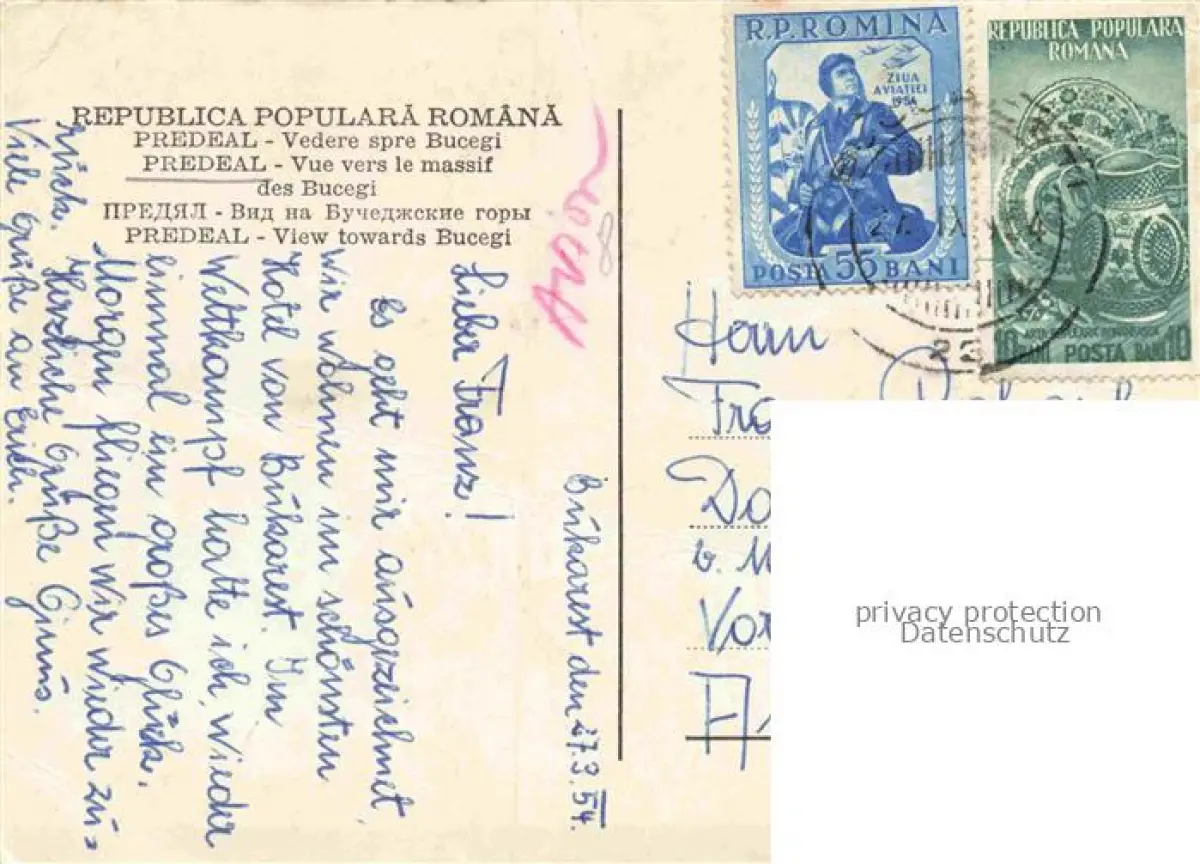 REPUBLICA POPULARĂ ROMÂNĂ
PREDEAL - Vedere spre Bucegi
PREDEAL - Vue vers le massif
des Bucegi
ПРЕДЯЛ - Вид на Бучеджские горы
PREDEAL - View towards Bucegi
Bukarest den 27.9.54.
Lieber Franz!
Es geht mir ausgezeichnet,
wir wohnen im schönsten
Hotel von Bukarest. Im
Wettkampf hatte ich wieder
einmal ein großes Glück.
Morgen fliegen wir wieder zu=
rück.
Herzliche Grüße
Viele Grüße an Euch.
R.P.ROMINA
ZIUA
AVIATIEI
1954
POSTA 55 BANI
REPUBLICA POPULARA
ROMANA
10 BANI POSTA BANI 10
22
Herrn
Fra
Do
b. M
Vor
A
privacy protection
Datenschutz